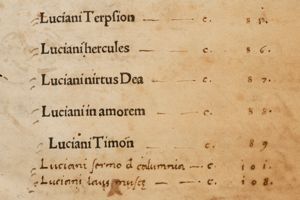 Luciani Terpsion — c. 85.
Luciani hercules — c. 86.
Luciani uirtus Dea — c. 87.
Luciani in amorem — c. 88.
Luciani Timon — c. 89
Luciani sermo d calumnia — c. 101.
Luciani laus muscę — c. 108.